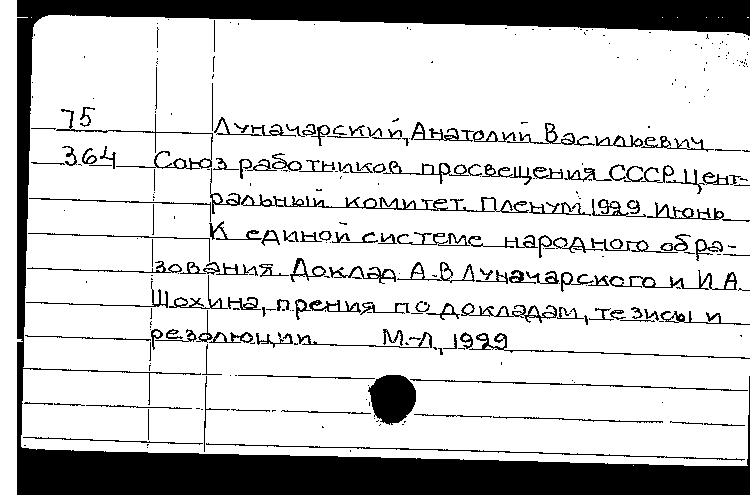 75
Луначарский, Анатолий Васильевич
364 Союз работников просвещения СССР. Цент-
ральный комитет. Пленум. 1929. Июнь
К единой системе народного обра-
зования. Доклад А.В. Луначарского и И.А.
Шохина, прения по докладам, тезисы и
резолюции. М.-Л., 1929